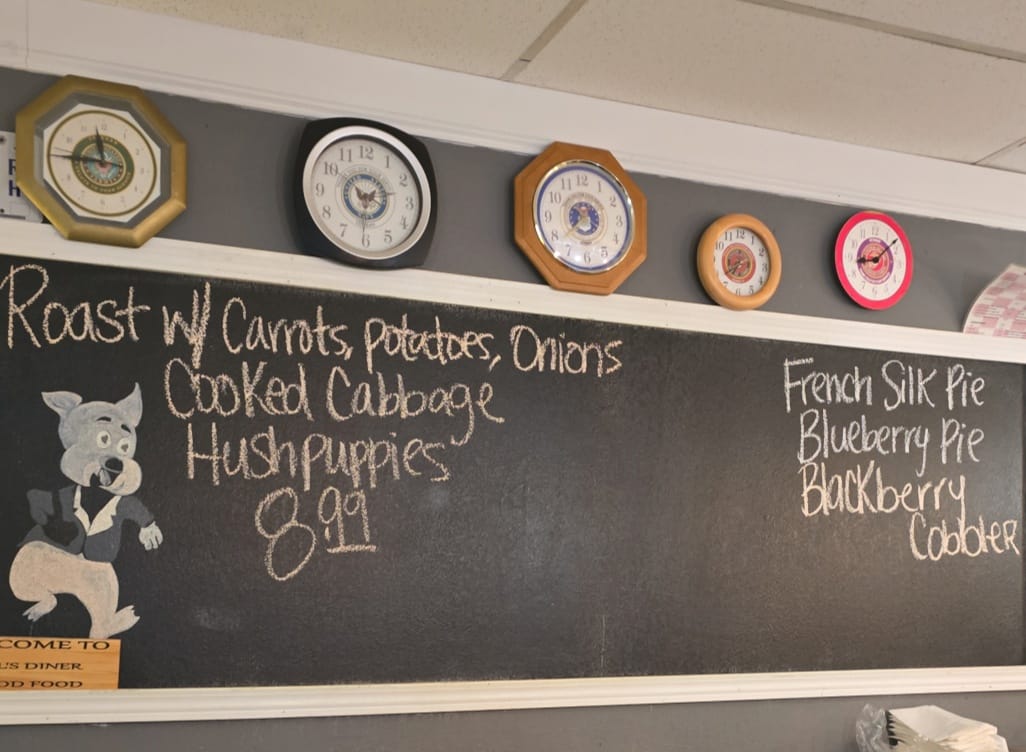 Roast w/ Carrots, potatoes, Onions
Cooked Cabbage
Hushpuppies
8.99
French Silk Pie
Blueberry Pie
Blackberry
Cobbler
COME TO
L'S DINER
OD FOOD